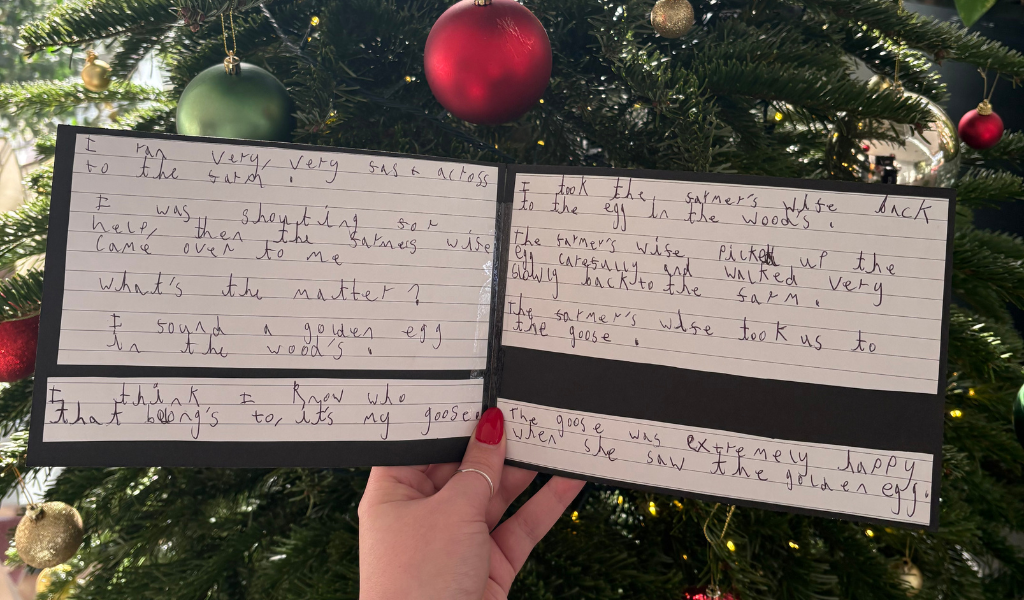 I ran very, very fast across
to the farm.
I was shouting for
help, then the farmers wife
came over to me
what's the matter?
I found a golden egg
In the wood's.
I think I know who
that belong's to, it's my goose
I took the farmer's wife back
to the egg in the wood's.
The farmer's wife picked up the
egg carefully and walked very
slowly back to the farm.
The farmer's wife took us to
the goose.
The goose was extremely happy
when she saw the golden egg.